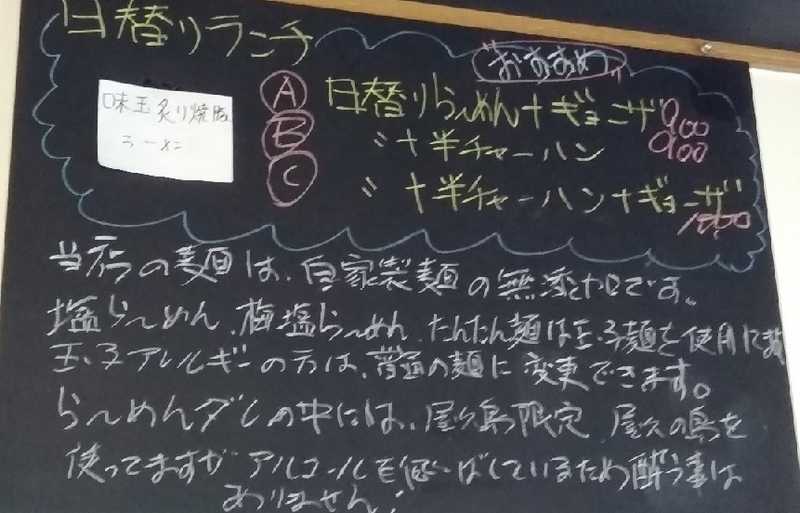 日替りランチ
おすすめ
味玉炙り焼豚
ラーメン
A 日替りらーめん+ギョーザ 900
B 〃 +半チャーハン 900
C 〃 +半チャーハン+ギョーザ 1000
当店の麺は、自家製麺の無添加です。
塩らーめん、梅塩らーめん、たんたん麺は玉子麺を使用
玉子アレルギーの方は、普通の麺に変更できます。
らーめんダレの中には、屋久島限定 屋久の島を
使ってますがアルコールを飛ばしているため酔う事は
ありません!